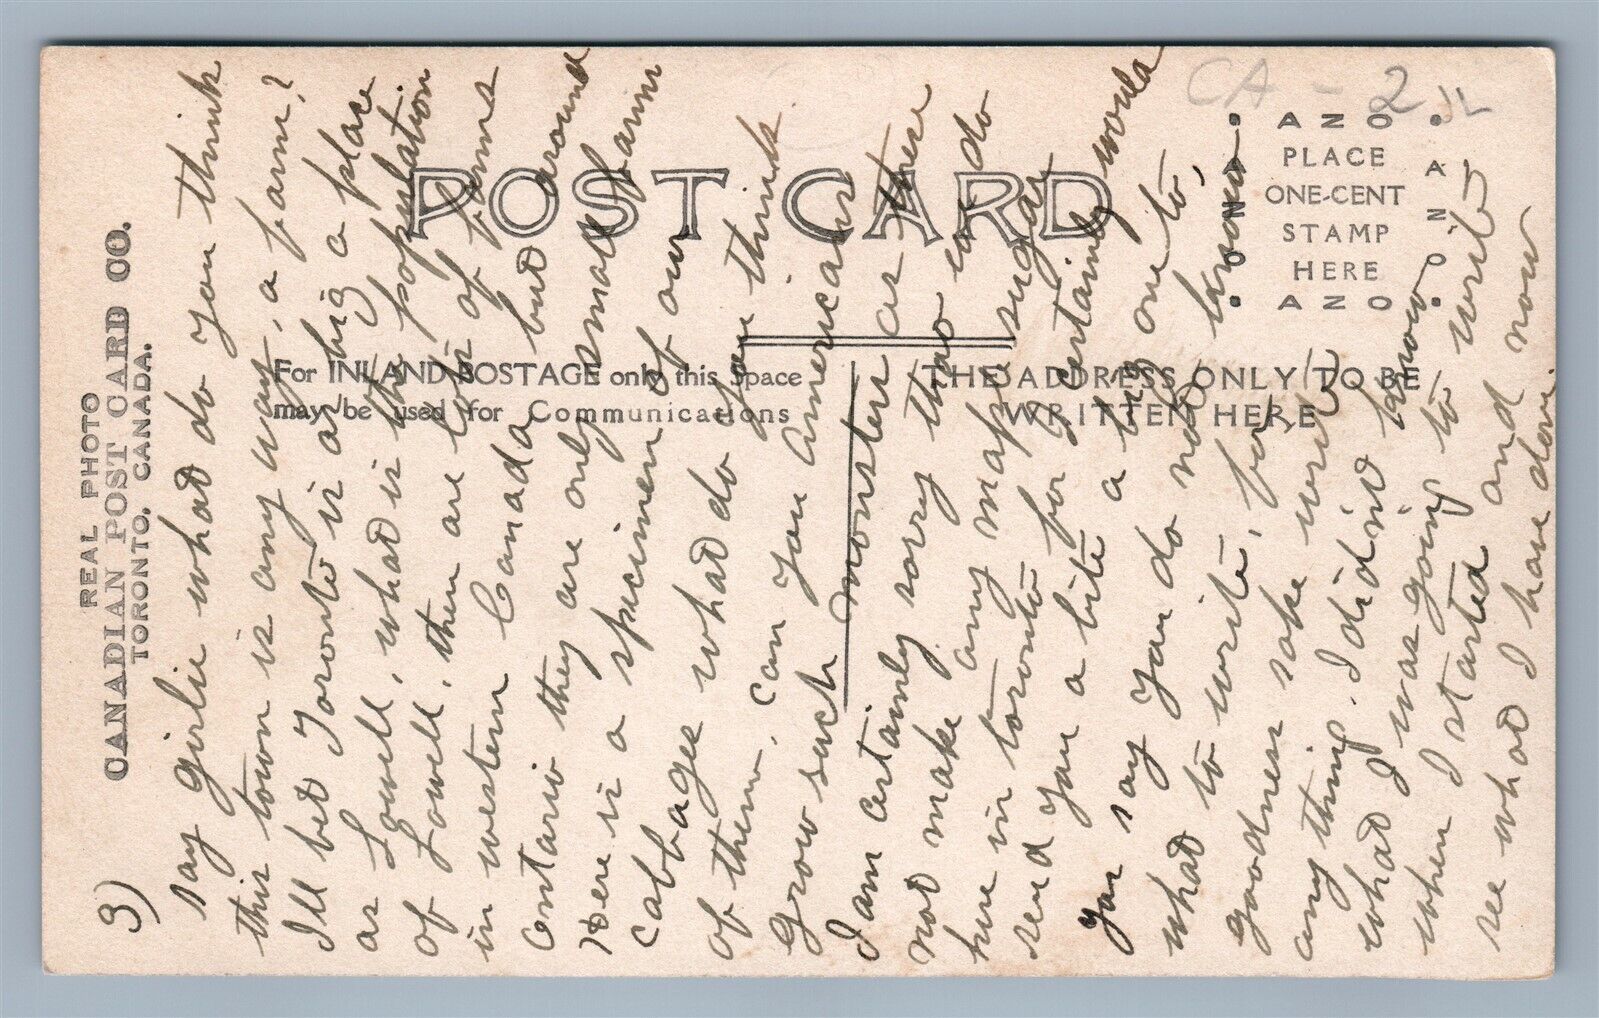 REAL PHOTO
CANADIAN POST CARD CO.
TORONTO. CANADA.
POST CARD
For INLAND POSTAGE only this Space
may be used for Communications
THE ADDRESS ONLY TO BE
WRITTEN HERE
AZO
PLACE
ONE-CENT
STAMP
HERE
AZO
AZO
AZO
CA - 2
3)
say girlie what do you think
this town is any way, a farm?
I'll bet Toronto is as big a place
as Lowell, what is the population
of Lowell, then are lots of farms
in western Canada but around
Ontario they are only small farms
Here is a specimen of our
cabbages what do you think
of them. can you americans
grow such monsters as these
I am certainly sorry that cards do
not make any map sugar
here in toronto for I certainly would
send you a bite a big one to,
you say you do not know
what to write, for
goodness sake write
anything. I didnt know
what I was going to write
when I started and now
see what I have done